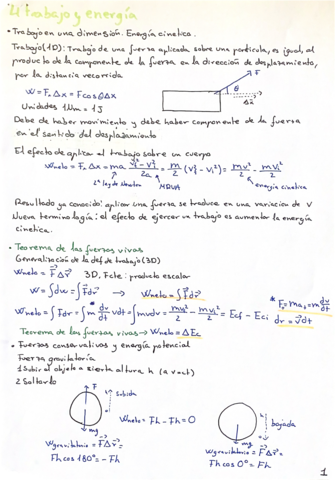 4 Trabajo y energía
• Trabajo en una dimensión. Energía cinetica.
Trabajo (1D): Trabajo de una fuerza aplicada sobre una partícula, es igual, al
producto de la componente de la fuerza en la dirección de desplazamiento,
por la distancia recorrida
W = Fx Δx = F cosθ Δx
Unidades 1Nm = 1J
F
θ
Δx
Debe de haber movimiento y debe haber componente de la fuerza
en el sentido del desplazamiento
El efecto de aplicar el trabajo sobre un cuerpo
Wneto = Fx Δx = ma (vf² - vi²)/2a = m/2 (vf² - vi²) = mvf²/2 - mvi²/2
2ª ley de Newton MRUA energia cinetica
Resultado ya conocido: aplicar una fuerza se traduce en una variacion de V
Nueva terminologia: el efecto de ejercer un trabajo es aumentar la energía
cinetica.
• Teorema de las fuerzas vivas
Generalización de la def de trabajo (3D)
Wneto = F Δr 3D, F cte: producto escalar
W = ∫dw = ∫F dr → Wneto = ∫F dr
* Fx = max = m dv/dt
Wneto = ∫F dr = ∫m dv/dt v dt = ∫mv dv = mvf²/2 - mvi²/2 = Ecf - Eci
dr = v dt
Teorema de las fuerzas vivas → Wneto = ΔEc
• Fuerzas conservativas y energía potencial
Fuerza gravitatoria
1 Subir el objeto a cierta altura h (a v = cte)
2 Soltarlo
F
subida
mg
Wneto = Fh - Fh = 0
h
bajada
mg
Wgravitatorio = F Δr =
Fh cos 180° = - Fh
Wgravitatorio = F Δr =
Fh cos 0° = Fh
1